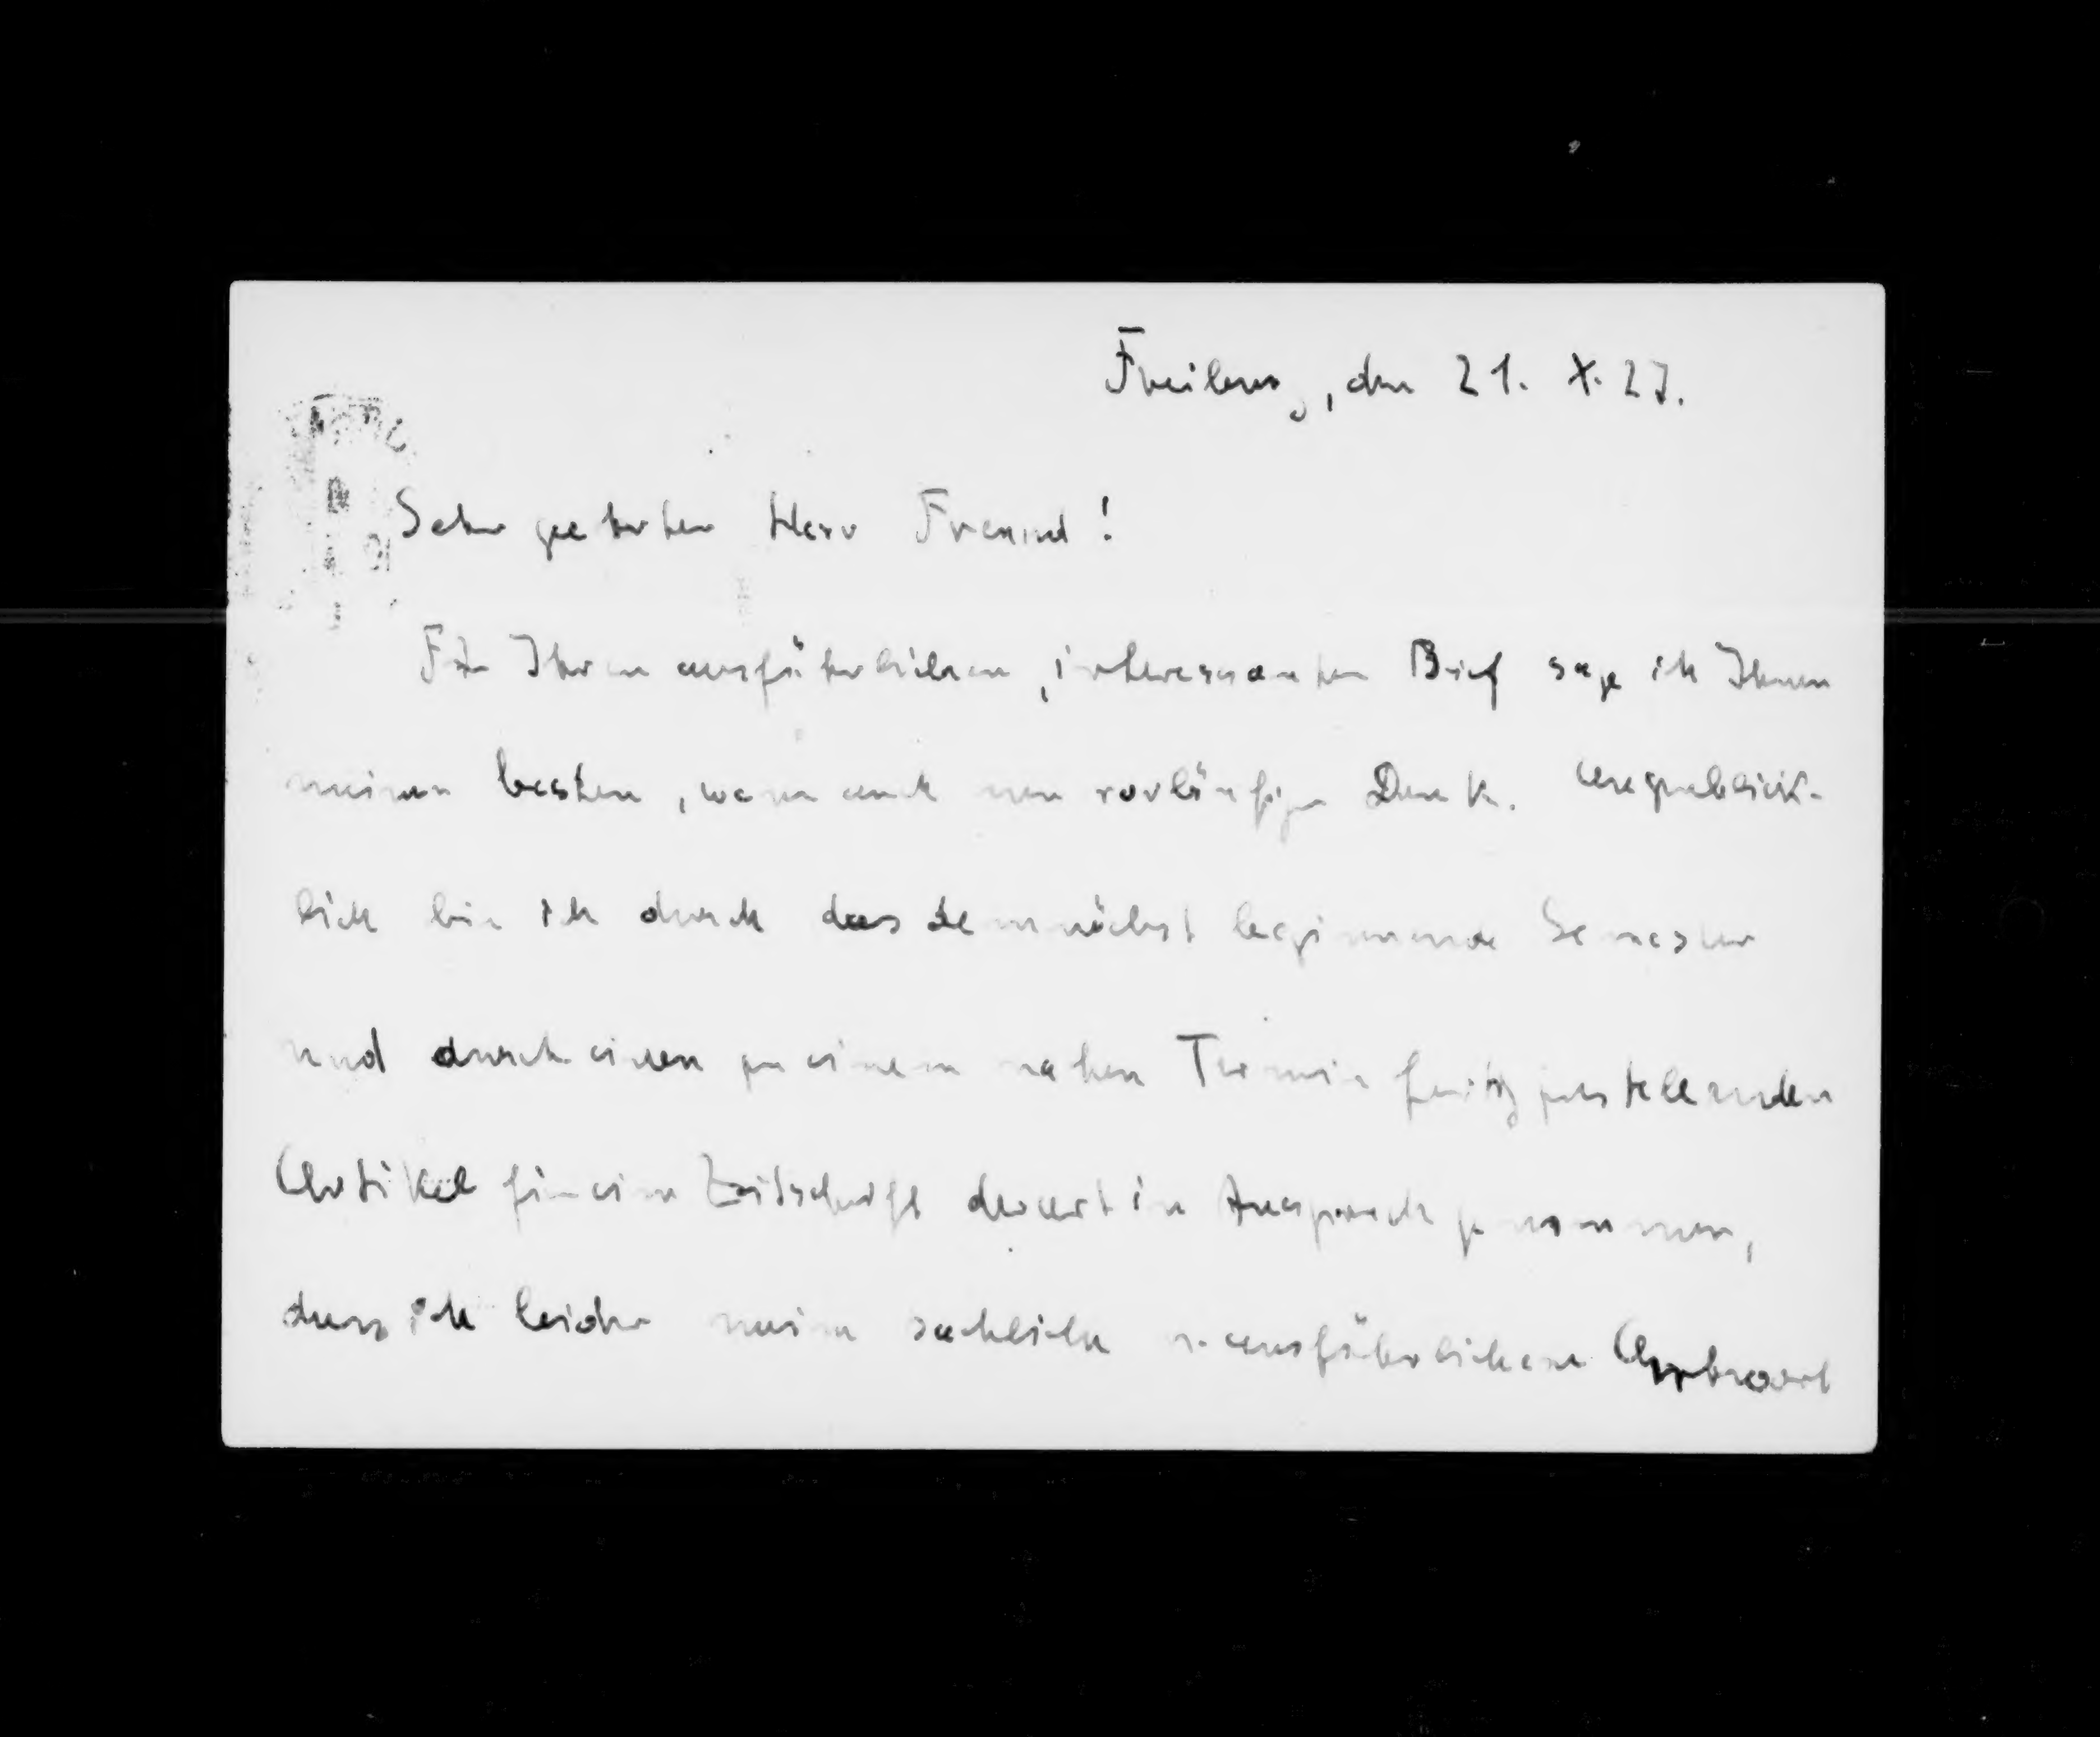 Freiburg, den 21. X. 27.
Sehr geehrter Herr Freund!
Für Ihren ausführlichen, interessanten Brief sage ich Ihnen
meinen besten, wenn auch nur vorläufigen Dank. Augenblick-
lich bin ich durch das demnächst beginnende Semester
und durch einen zu einem nahen Termin fertigzustellenden
Artikel für eine Zeitschrift derart in Anspruch genommen,
dass ich leider meine sachliche u. ausführlichere Antwort